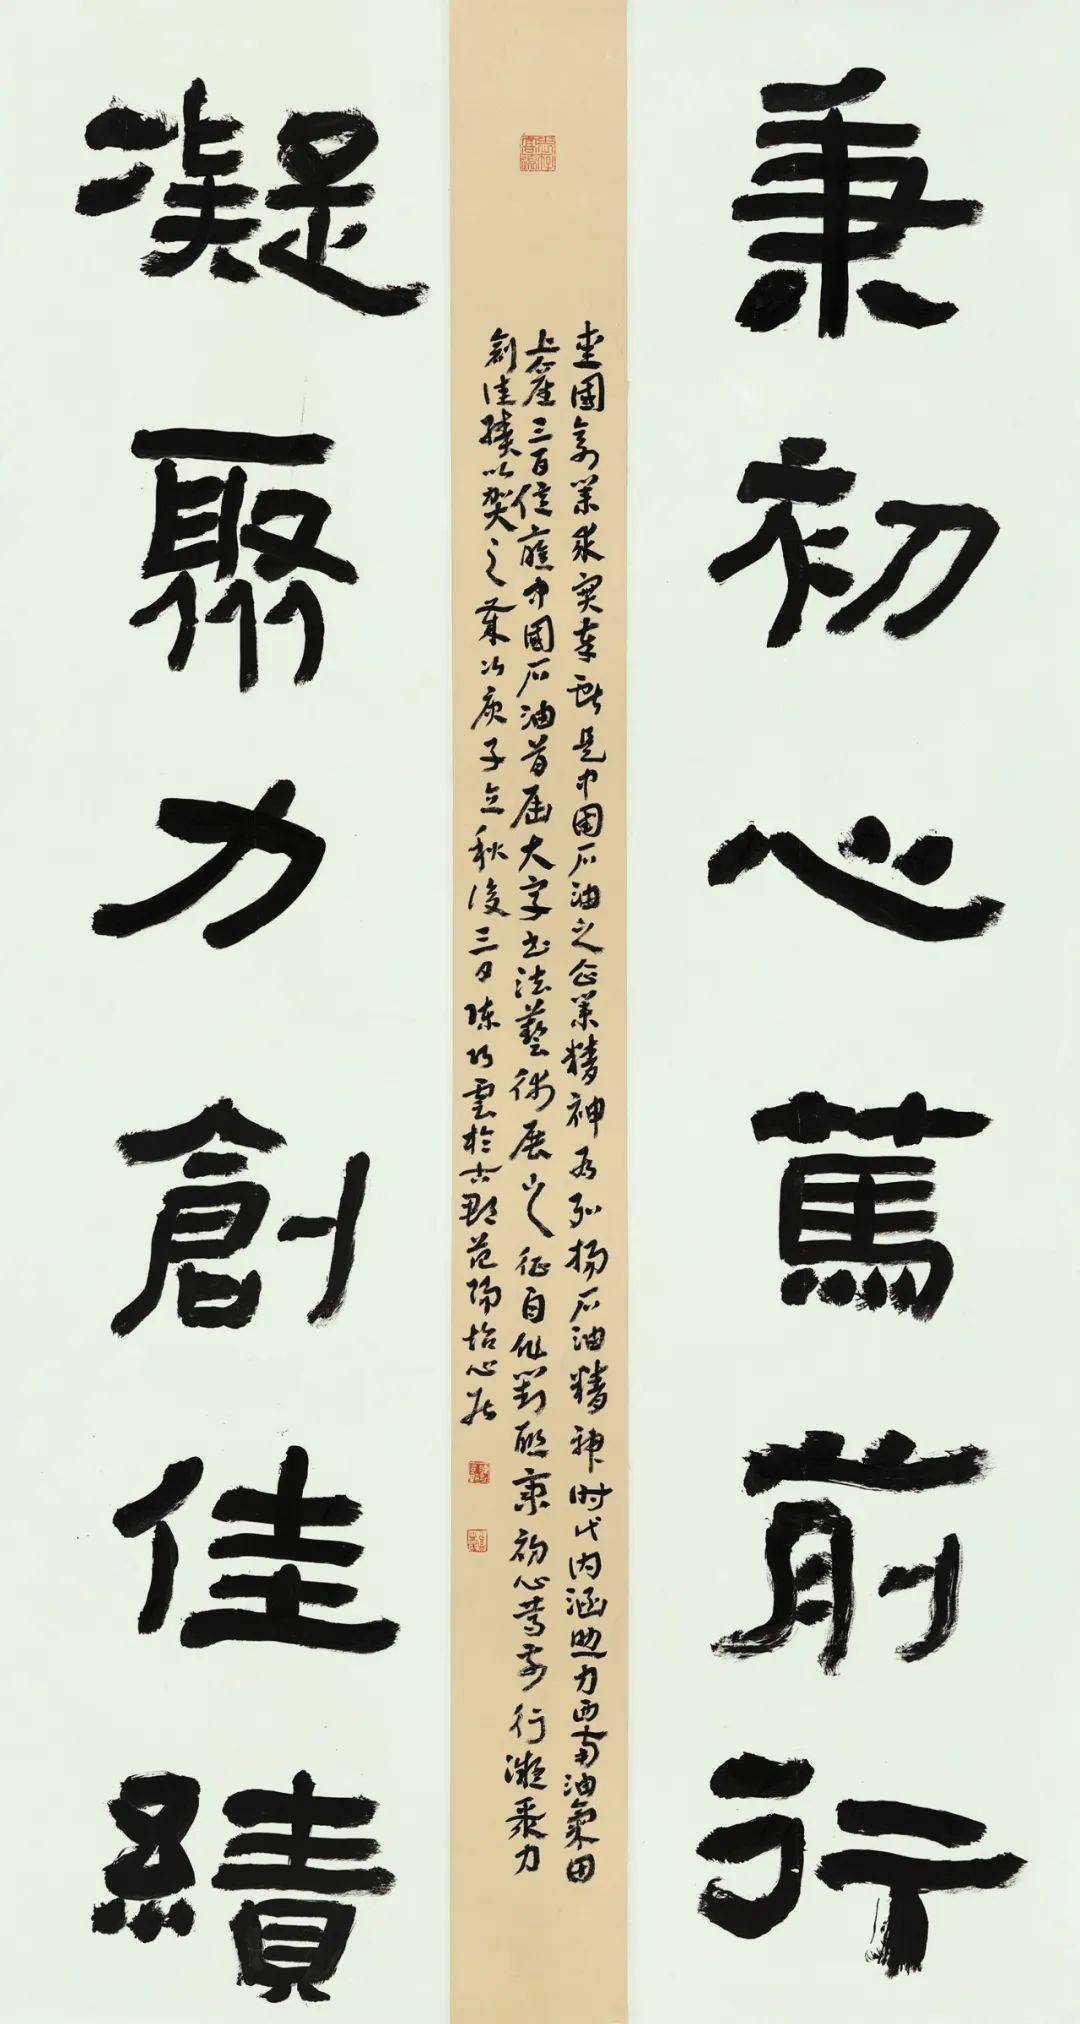 秉初心篤前行
愛國創業求實奉獻是中国石油之企業精神為弘揚石油精神时代内涵助力西南油氣田
上產三百億應中國石油首届大字书法藝術展之征自作對聯秉初心篤前行凝聚力
創佳績以賀之歲次庚子立秋後三日陳巧雲於古郡范陽怡心居
凝聚力創佳績